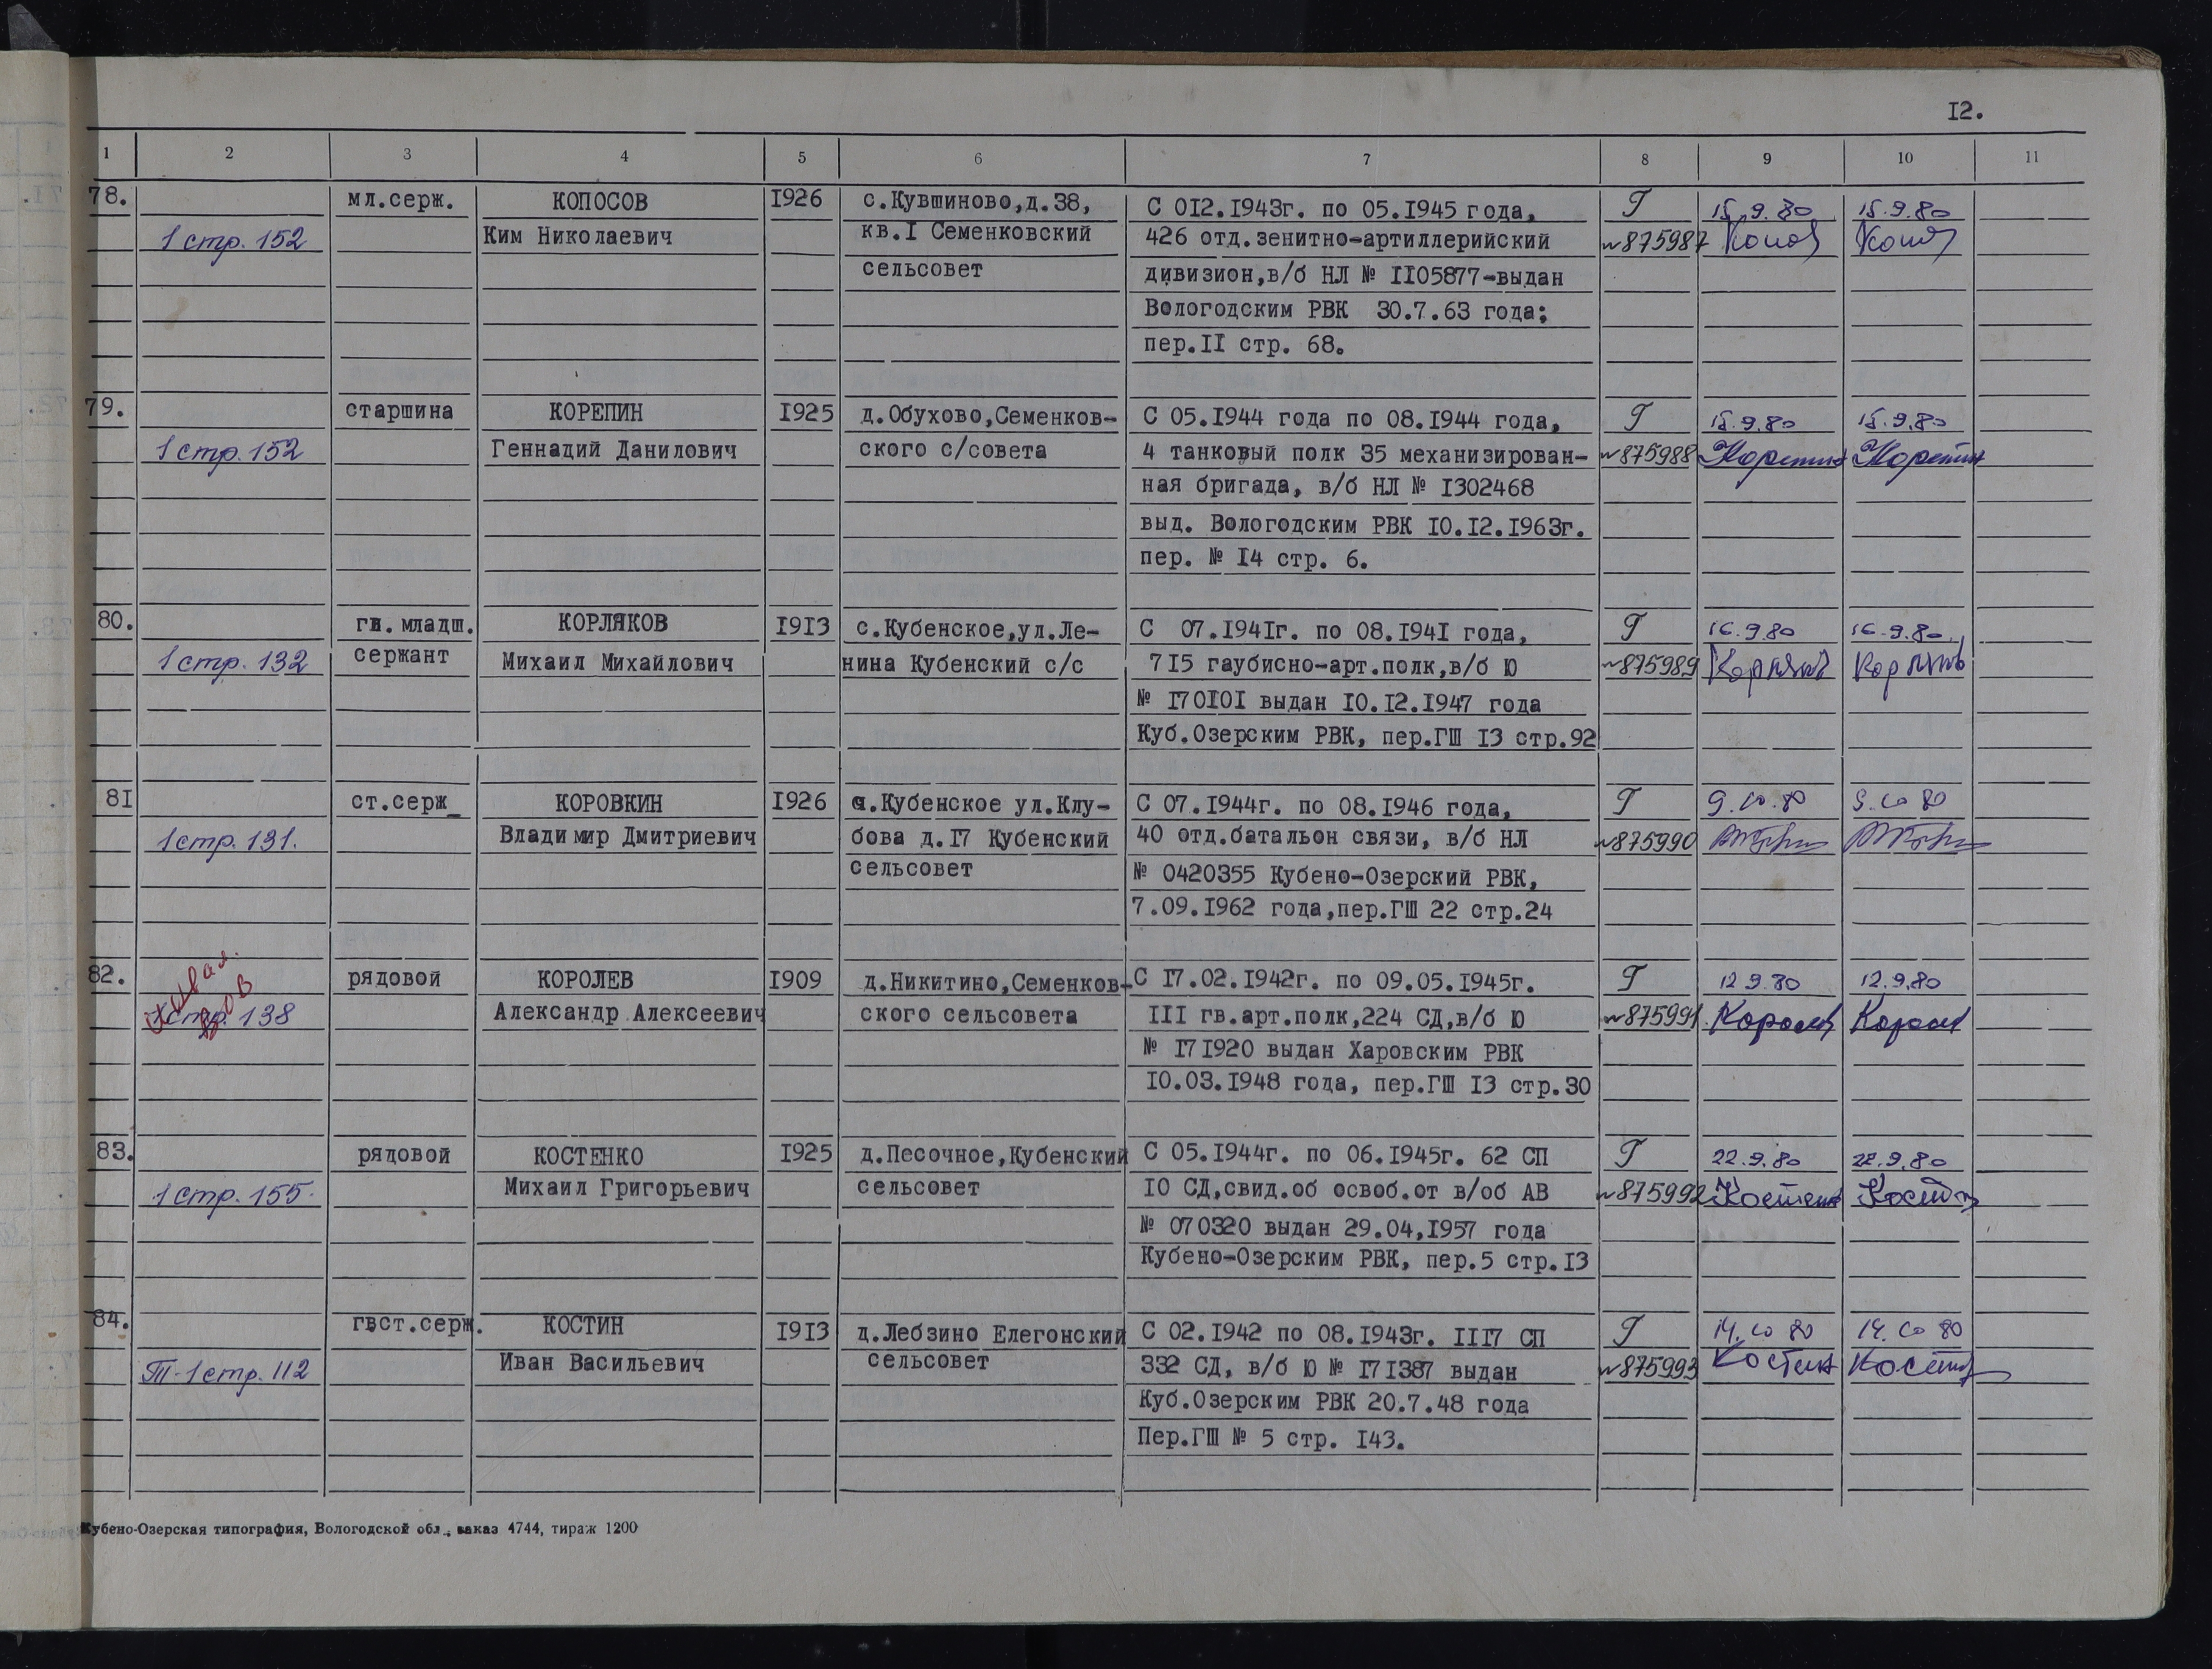 12.
1 2 3 4 5 6 7 8 9 10 11
78. мл.серж. КОПОСОВ 1926 с.Кувшиново,д.38, С 012.1943г. по 05.1945 года, Г 15.9.80 15.9.80
1 стр. 152 Ким Николаевич кв.1 Семенковский 426 отд.зенитно-артиллерийский №875987
сельсовет дивизион,в/б НЛ № 1105877-выдан
Вологодским РВК 30.7.63 года;
пер.11 стр. 68.
79. старшина КОРЕПИН 1925 д.Обухово,Семенков- С 05.1944 года по 08.1944 года, Г 15.9.80 15.9.80
1 стр. 152 Геннадий Данилович ского с/совета 4 танковый полк 35 механизирован- №875988 Корепин Корепин
ная бригада, в/б НЛ № 1302468
выд. Вологодским РВК 10.12.1963г.
пер. № 14 стр. 6.
80. гв. младш. КОРЛЯКОВ 1913 с.Кубенское,ул.Ле- С 07.1941г. по 08.1941 года, Г 16.9.80 16.9.80
1 стр. 132 сержант Михаил Михайлович нина Кубенский с/с 715 гаубисно-арт.полк,в/б Ю №875989 Корляков Корляков
№ 170101 выдан 10.12.1947 года
Куб.Озерским РВК, пер.ГШ 13 стр.92
81 ст.серж_ КОРОВКИН 1926 с.Кубенское ул.Клу- С 07.1944г. по 08.1946 года, Г 9.10.80 9.10 80
1 стр. 131. Владимир Дмитриевич бова д.17 Кубенский 40 отд.батальон связи, в/б НЛ №875990
сельсовет № 0420355 Кубено-Озерский РВК,
7.09.1962 года,пер.ГШ 22 стр.24
82. рядовой КОРОЛЕВ 1909 д.Никитино,Семенков- С 17.02.1942г. по 09.05.1945г. Г 12 9.80 12.9.80
1 стр. 138 Александр Алексеевич ского сельсовета 111 гв.арт.полк,224 СД,в/б Ю №875991 Королев Королев
№ 171920 выдан Харовским РВК
10.03.1948 года, пер.ГШ 13 стр.30
83. рядовой КОСТЕНКО 1925 д.Песочное,Кубенский С 05.1944г. по 06.1945г. 62 СП Г 22.9.80 22.9.80
1 стр. 155. Михаил Григорьевич сельсовет 10 СД,свид.об освоб.от в/об АВ №875992 Костенко Костенко
№ 070320 выдан 29.04,1957 года
Кубено-Озерским РВК, пер.5 стр.13
84. гвст.серж. КОСТИН 1913 д.Лебзино Елегонский С 02.1942 по 08.1943г. 1117 СП Г 14.10 80 14.10 80
Т-1 стр. 112 Иван Васильевич сельсовет 332 СД, в/б Ю № 171387 выдан №875993 Костин Костин
Куб.Озерским РВК 20.7.48 года
Пер.ГШ № 5 стр. 143.
Кубено-Озерская типография, Вологодской обл., заказ 4744, тираж 1200